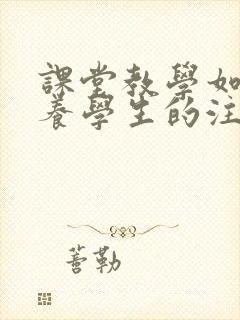 課堂教學如
養學生的注
蒼勒